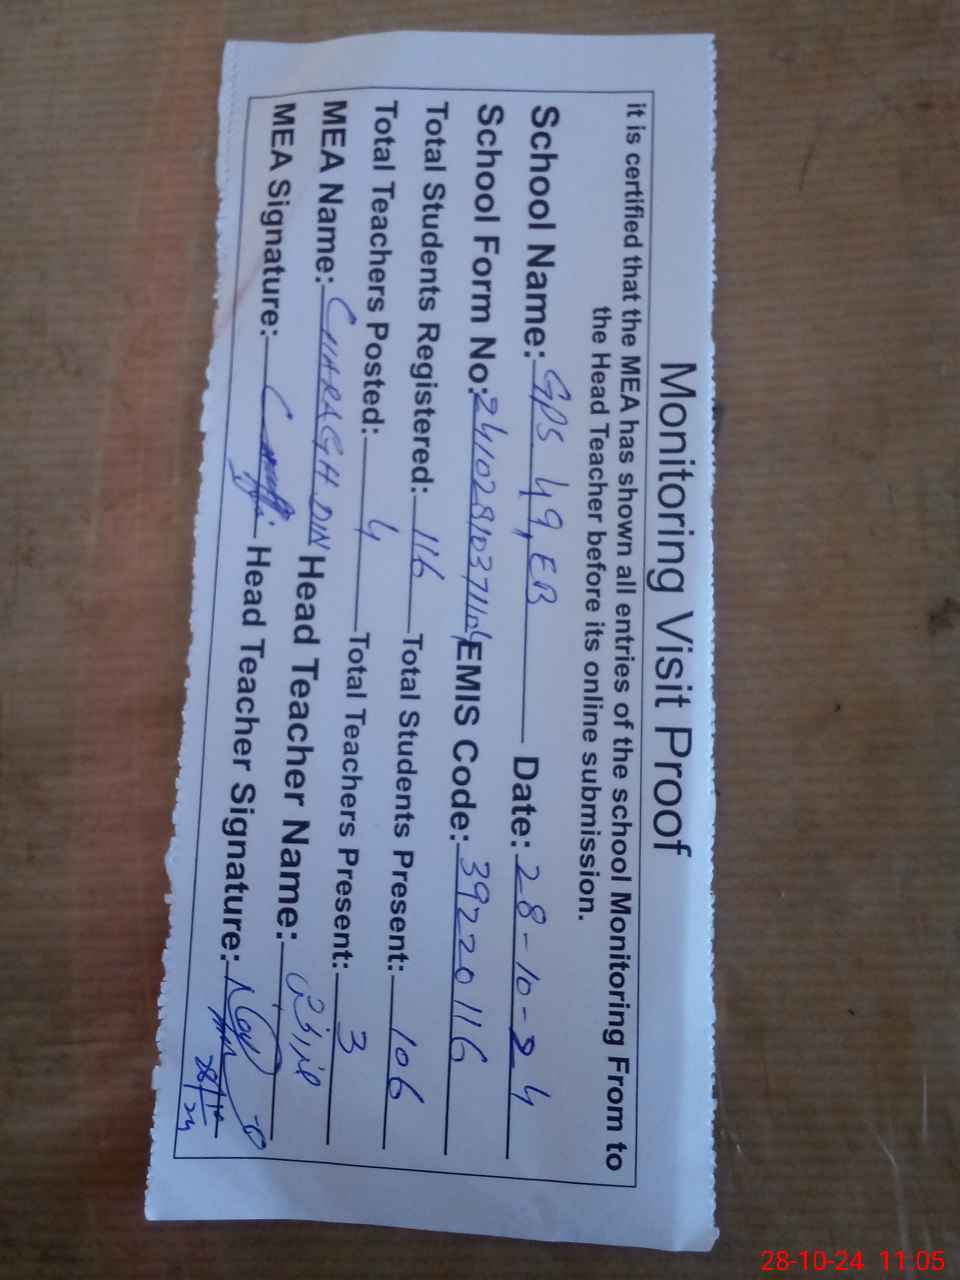 Monitoring Visit Proof
it is certified that the MEA has shown all entries of the school Monitoring From to
the Head Teacher before its online submission.
School Name: GPS 49, EB Date: 28-10-24
School Form No: 24102810371104 EMIS Code: 39220116
Total Students Registered: 116 Total Students Present: 106
Total Teachers Posted: 4 Total Teachers Present: 3
MEA Name: CHARAGH DIN Head Teacher Name:
MEA Signature: Head Teacher Signature:
28/10/24
28-10-24 11:05